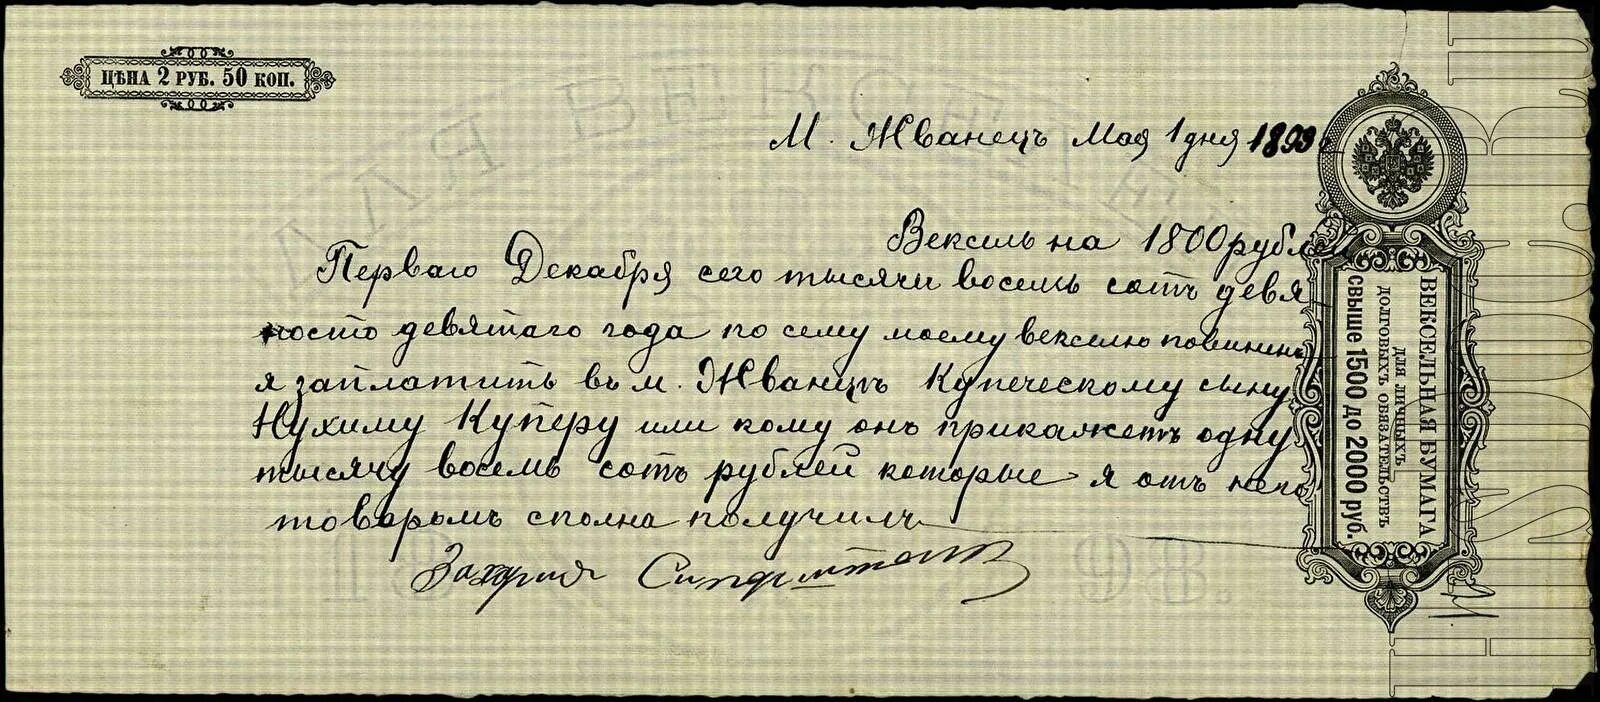 ЦѢНА 2 РУБ. 50 КОП.
М. Жванецъ Мая 1 дня 1899
Вексиль на 1800 рубл
Перваго Декабря сего тысячи восемь сотъ девя
носто девятаго года по сему моему векселю повиненъ
я заплатить въ м. Жванецъ Купеческому сыну
Нухиму Куперу или кому онъ прикажетъ одну
тысячу восемь сотъ рублей которые я отъ него
товаромъ сполна получилъ
Захария
ВЕКСЕЛЬНАЯ БУМАГА
ДЛЯ ЛИЧНЫХЪ
ДОЛГОВЫХЪ ОБЯЗАТЕЛЬСТВЪ
СВЫШЕ 1500 ДО 2000 РУБ.